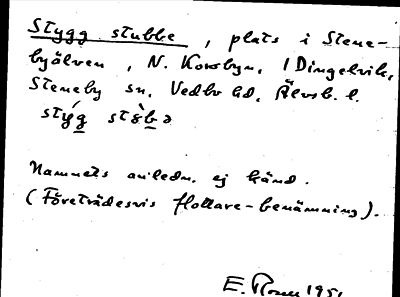 Stygg stubbe, plats i Stene-
byälven, N. Kornbyn, (Dingelvik,
Steneby sn, Vedbo hd, Älvsb. l.
Namnets anledn. ej känd.
(Företrädesvis flottare-benämning).
E. 1951